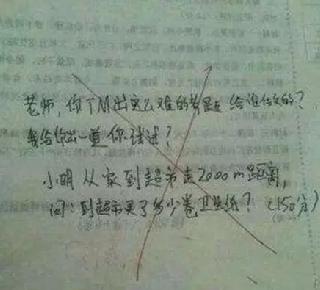 老师,你TM出这么难的数学题 给谁做的?
我给你出一道 你试试?
小明从家到超市走2000m距离,
问:到超市买了多少卷卫生纸?(150分)